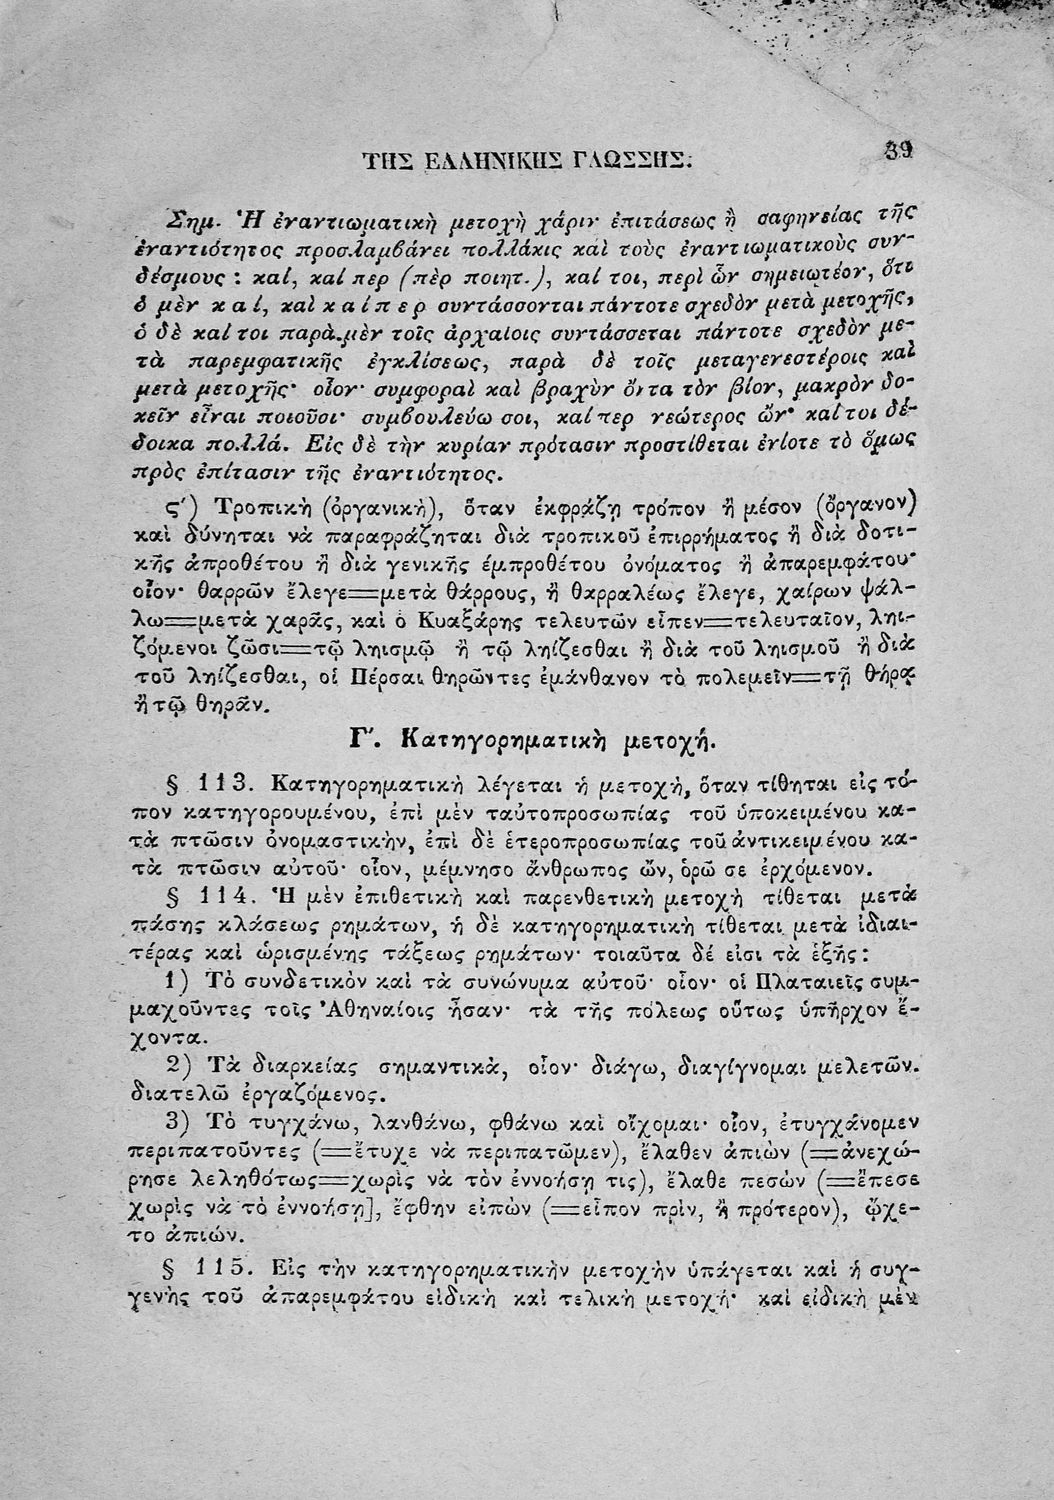 ΤΗΣ ΕΛΛΗΝΙΚΗΣ ΓΛΩΣΣΗΣ. 39
Σημ. Ἡ ἐναντιωματικὴ μετοχὴ χάριν ἐπιτάσεως ἢ σαφηνείας τῆς
ἐναντιότητος προσλαμβάνει πολλάκις καὶ τοὺς ἐναντιωματικοὺς συν-
δέσμους : καί, καί περ (πὲρ ποιητ.), καί τοι, περὶ ὧν σημειωτέον, ὅτι
ὁ μὲν καί, καὶ καίπερ συντάσσονται πάντοτε σχεδὸν μετὰ μετοχῆς,
ὁ δὲ καί τοι παρὰ μὲν τοῖς ἀρχαίοις συντάσσεται πάντοτε σχεδὸν με-
τὰ παρεμφατικῆς ἐγκλίσεως, παρὰ δὲ τοῖς μεταγενεστέροις καὶ
μετὰ μετοχῆς· οἷον· συμφοραὶ καὶ βραχὺν ὄντα τὸν βίον, μακρὸν δο-
κεῖν εἶναι ποιοῦσι· συμβουλεύω σοι, καί περ νεώτερος ὤν· καί τοι δέ-
δοικα πολλά. Εἰς δὲ τὴν κυρίαν πρότασιν προστίθεται ἐνίοτε τὸ ὅμως
πρὸς ἐπίτασιν τῆς ἐναντιότητος.
ς΄) Τροπικὴ (ὀργανικὴ), ὅταν ἐκφράζῃ τρόπον ἢ μέσον (ὄργανον)
καὶ δύνηται νὰ παραφράζηται διὰ τροπικοῦ ἐπιρρήματος ἢ διὰ δοτι-
κῆς ἀπροθέτου ἢ διὰ γενικῆς ἐμπροθέτου ὀνόματος ἢ ἀπαρεμφάτου·
οἷον· θαρρῶν ἔλεγε=μετὰ θάρρους, ἢ θαρραλέως ἔλεγε, χαίρων ψάλ-
λω=μετὰ χαρᾶς, καὶ ὁ Κυαξάρης τελευτῶν εἶπεν=τελευταῖον, ληι-
ζόμενοι ζῶσι=τῷ ληισμῷ ἢ τῷ ληίζεσθαι ἢ διὰ τοῦ ληισμοῦ ἢ διὰ
τοῦ ληίζεσθαι, οἱ Πέρσαι θηρῶντες ἐμάνθανον τὸ πολεμεῖν=τῇ θήρᾳ
ἢ τῷ θηρᾶν.
Γ΄. Κατηγορηματικὴ μετοχή.
§ 113. Κατηγορηματικὴ λέγεται ἡ μετοχὴ, ὅταν τίθηται εἰς τό-
πον κατηγορουμένου, ἐπὶ μὲν ταὐτοπροσωπίας τοῦ ὑποκειμένου κα-
τὰ πτῶσιν ὀνομαστικὴν, ἐπὶ δὲ ἑτεροπροσωπίας τοῦ ἀντικειμένου κα-
τὰ πτῶσιν αὐτοῦ· οἷον, μέμνησο ἄνθρωπος ὤν, ὁρῶ σε ἐρχόμενον.
§ 114. Ἡ μὲν ἐπιθετικὴ καὶ παρενθετικὴ μετοχὴ τίθεται μετὰ
πάσης κλάσεως ρημάτων, ἡ δὲ κατηγορηματικὴ τίθεται μετὰ ἰδιαι-
τέρας καὶ ὡρισμένης τάξεως ρημάτων· τοιαῦτα δέ εἰσι τὰ ἑξῆς :
1) Τὸ συνδετικὸν καὶ τὰ συνώνυμα αὐτοῦ· οἷον· οἱ Πλαταιεῖς συμ-
μαχοῦντες τοῖς Ἀθηναίοις ἦσαν· τὰ τῆς πόλεως οὕτως ὑπῆρχον ἔ-
χοντα.
2) Τὰ διαρκείας σημαντικὰ, οἷον· διάγω, διαγίγνομαι μελετῶν.
διατελῶ ἐργαζόμενος.
3) Τὸ τυγχάνω, λανθάνω, φθάνω καὶ οἴχομαι· οἷον, ἐτυγχάνομεν
περιπατοῦντες (=ἔτυχε νὰ περιπατῶμεν), ἔλαθεν ἀπιὼν (=ἀνεχώ-
ρησε λεληθότως=χωρὶς νὰ τὸν ἐννοήσῃ τις), ἔλαθε πεσὼν (=ἔπεσε
χωρὶς νὰ τὸ ἐννοήσῃ], ἔφθην εἰπὼν (=εἶπον πρὶν, ἢ πρότερον), ᾤχε-
το ἀπιών.
§ 115. Εἰς τὴν κατηγορηματικὴν μετοχὴν ὑπάγεται καὶ ἡ συγ-
γενὴς τοῦ ἀπαρεμφάτου εἰδικὴ καὶ τελικὴ μετοχή· καὶ εἰδικὴ μὲν